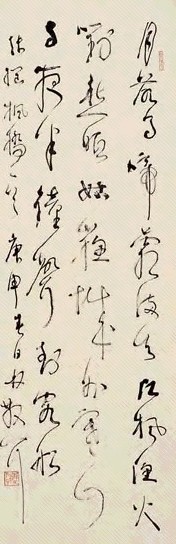 月落烏啼霜滿天江楓漁火
對愁眠姑蘇城外寒山
寺夜半鐘聲到客船
張繼楓橋 庚申春日林散耳